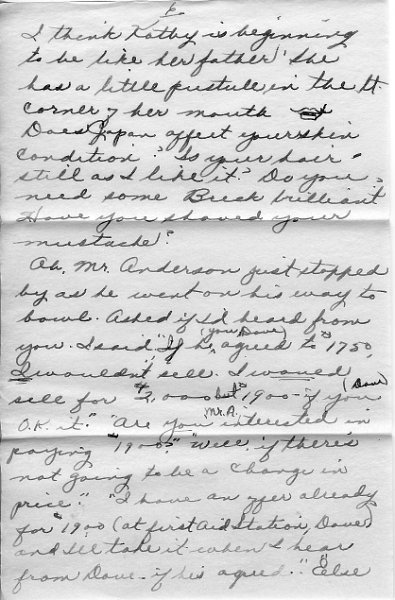 6
I think Kathy is beginning
to be like her father! She
has a little pustule in the rt.
corner of her mouth
Does Japan affect your skin
condition? Is your hair
still as I like it? Do you
need some Breck brilliant
Have you shaved your
mustache?
Ah, Mr. Anderson just stopped
by as he went on his way to
bowl. Asked if I'd heard from
you. I said "If he (you Dave) agreed to $1750,
I wouldn't sell. I would
sell for $2,000 but $1900- if you (Dave)
O.K. it." "Are you interested in
paying $1900?" Mr. A. "Well, if there's
not going to be a change in
price." "I have an offer already
for $1900 (at first Aid Station, Dave)
and I'll take it when I hear
from Dave - if he's agreed." Else